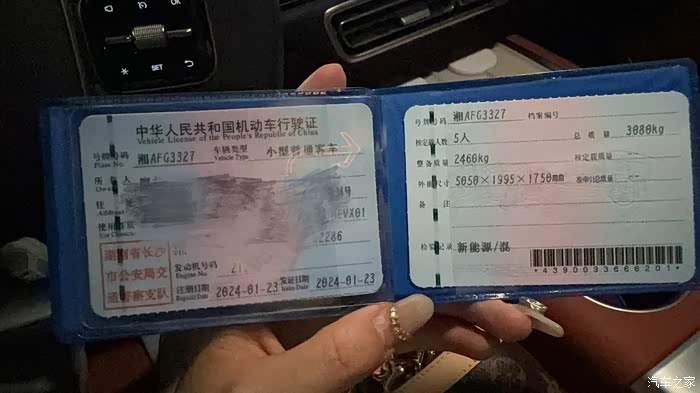 OK
SET
中华人民共和国机动车行驶证
Vehicle License of the People's Republic of China
号牌号码 湘AFG3327 车辆类型 小型普通客车
Plate No. Vehicle Type
所有人
住址
Address
使用性质
Use Character
湖南省长沙
市公安局交
通警察支队
VIN
2286
发动机号码
Engine No.
注册日期 2024-01-23 发证日期 2024-01-23
Register Date Issue Date
号牌号码 湘AFG3327 档案编号
核定载人数 5人 总质量 3080kg
整备质量 2460kg 核定载质量 --
外廓尺寸 5050×1995×1750mm 准牵引总质量 --
备注
检验记录 新能源/混
*4390033666201*
汽车之家